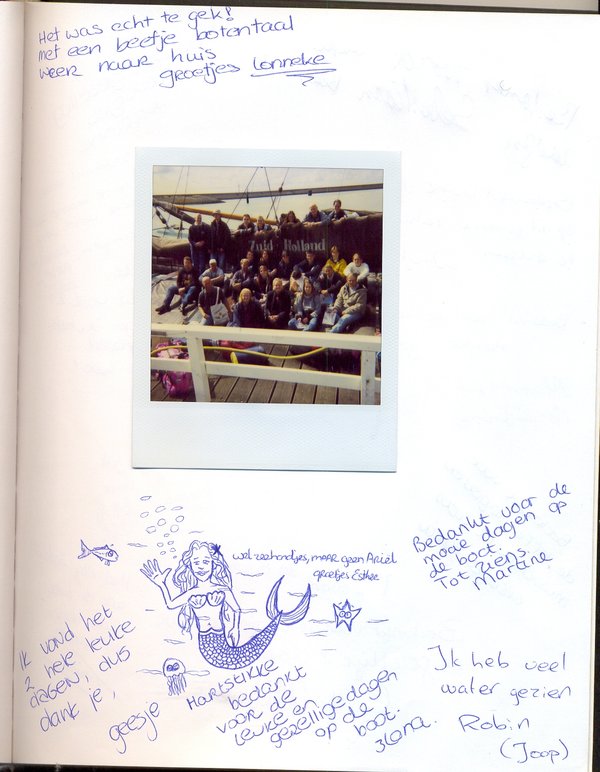 Het was echt te gek!
met een beetje botentaal
weer naar huis
groetjes Lonneke
Zuid Holland
wel zeehondjes, MAAR geen Ariel
groetjes Esther
Bedankt voor de
mooie dagen op
de boot.
Tot ziens.
Martine
Ik vond het
2 hele leuke
dagen, dus
dank je,
geesje
HARTSTIKKE
bedankt
voor de
leuke en
gezellige dagen
op de
boot.
Ik heb veel
water gezien
Robin
(Joop)